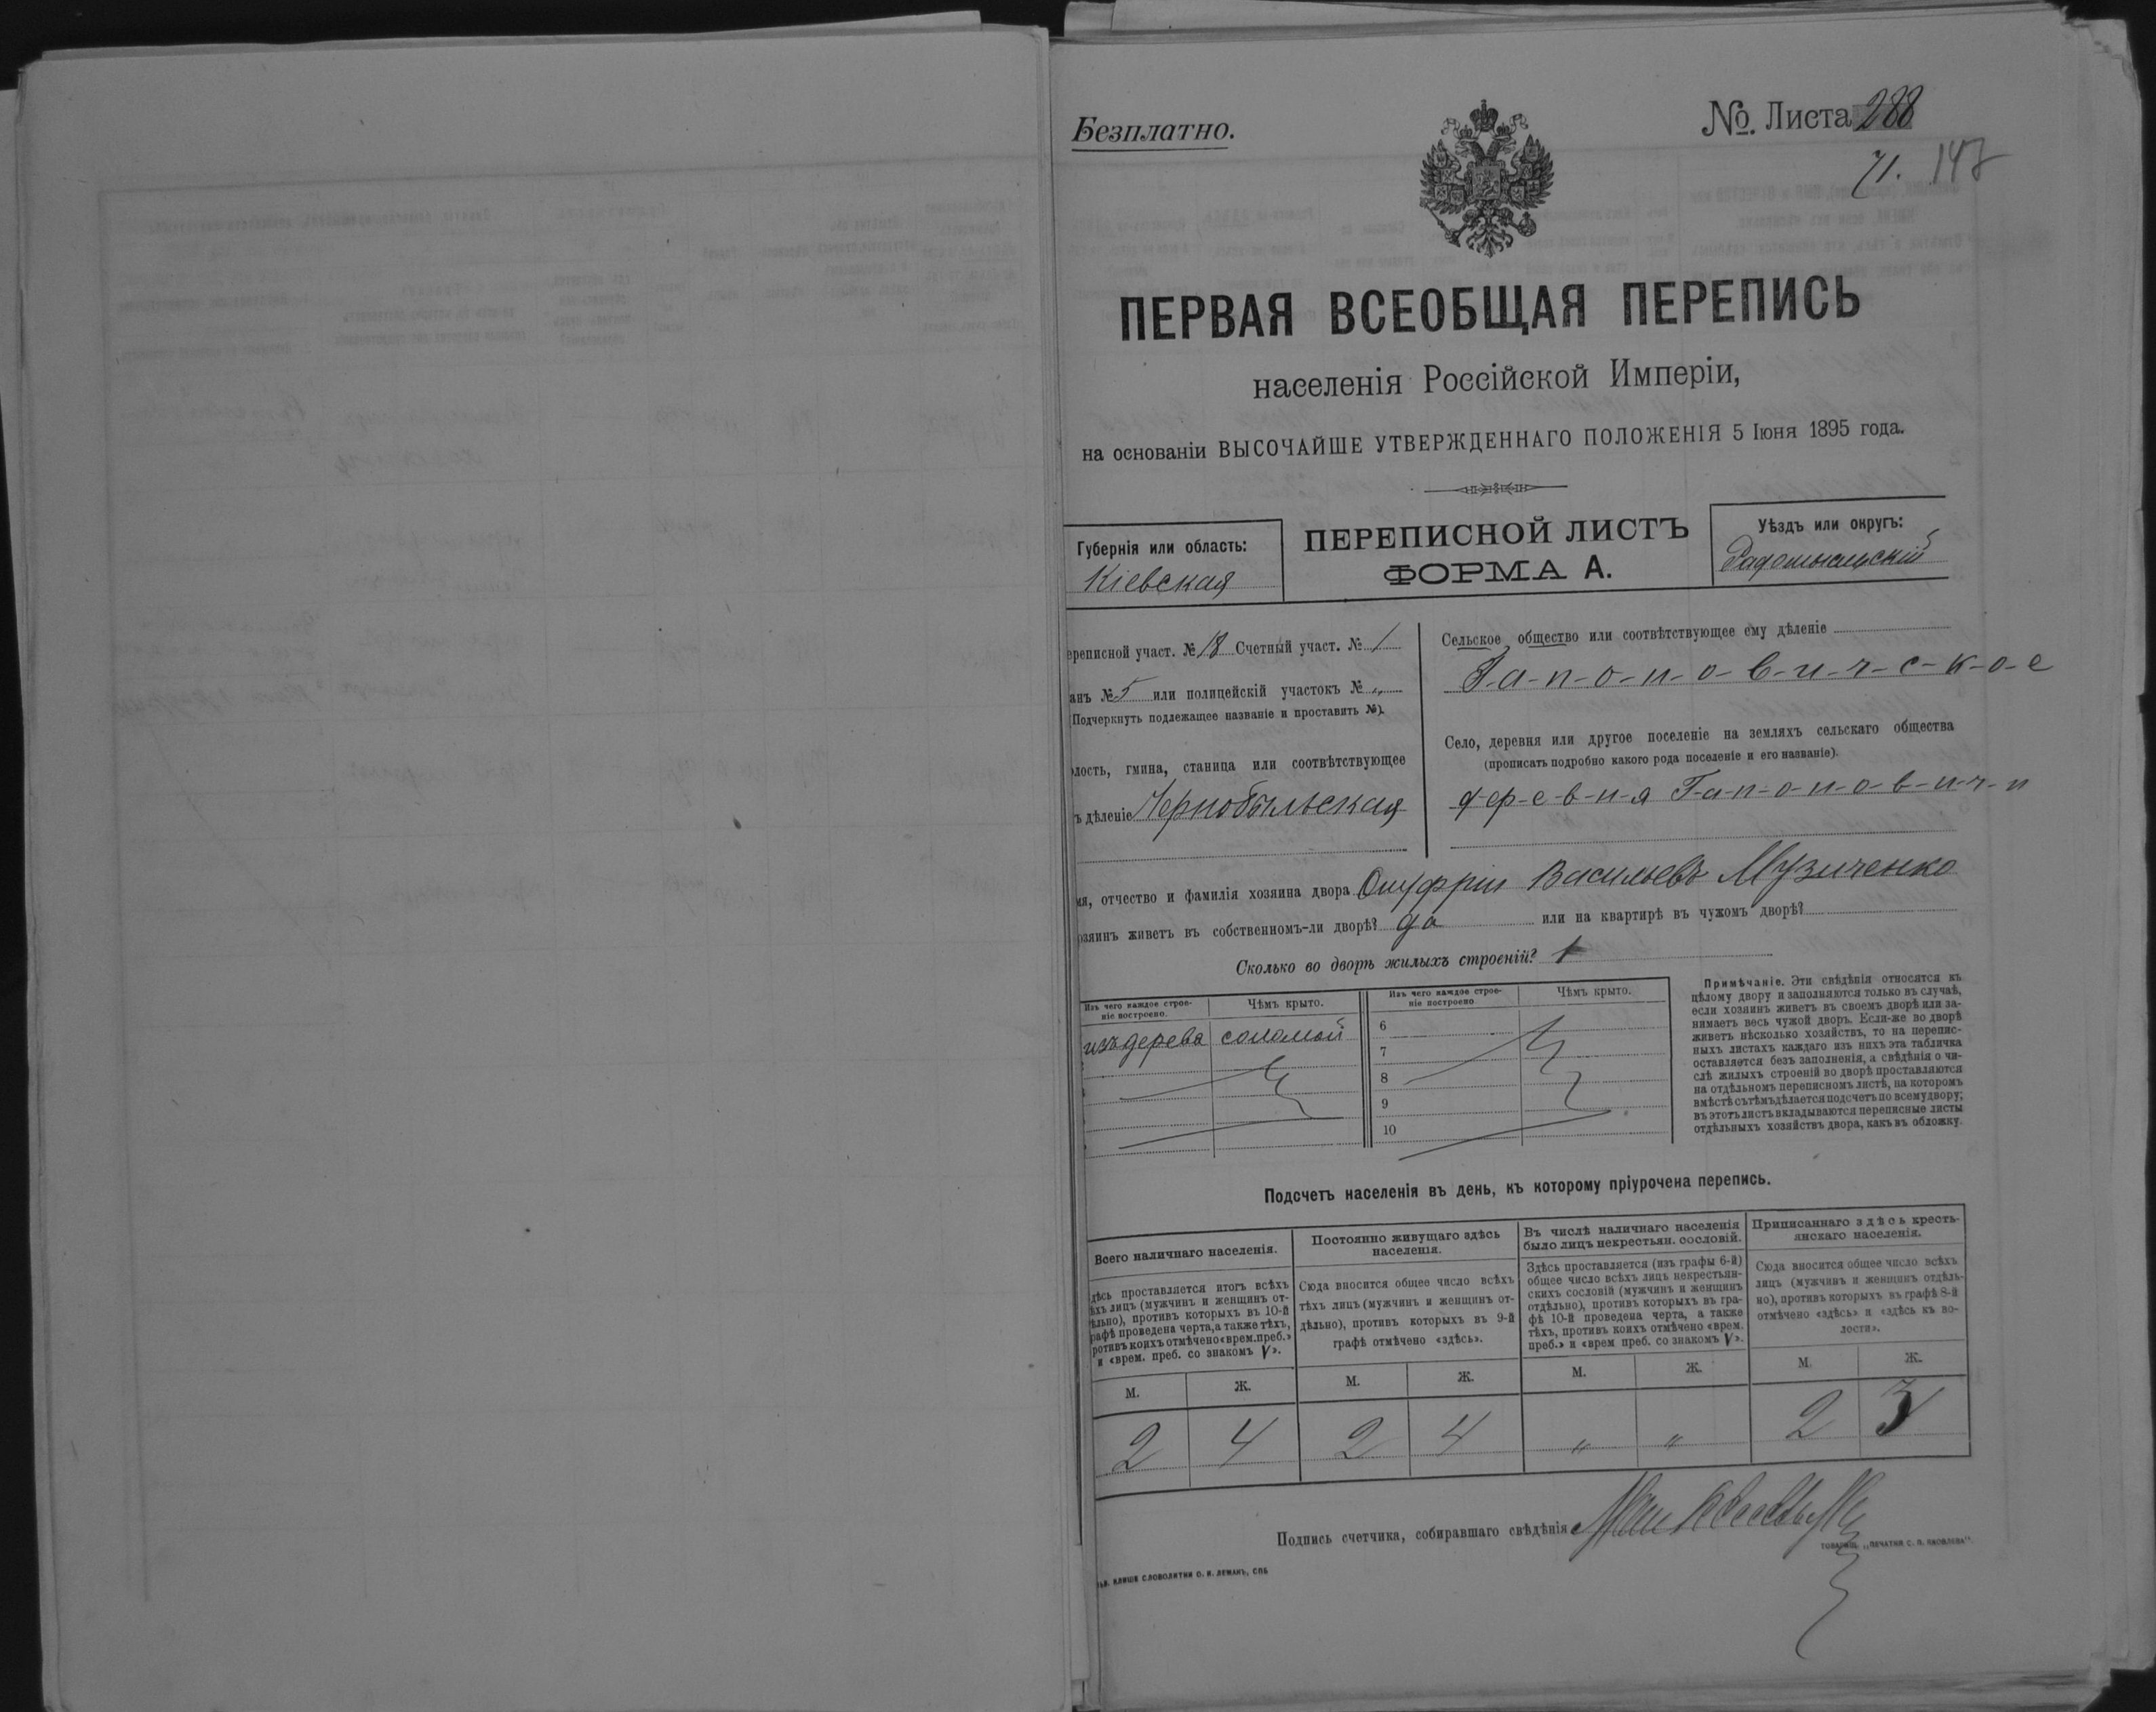 Безплатно.
№ Листа 288
71. 147
ПЕРВАЯ ВСЕОБЩАЯ ПЕРЕПИСЬ
населенія Россійской Имперіи,
на основаніи ВЫСОЧАЙШЕ УТВЕРЖДЕННАГО ПОЛОЖЕНІЯ 5 Іюня 1895 года.
Губернія или область:
Кіевская
ПЕРЕПИСНОЙ ЛИСТЪ
ФОРМА А.
Уѣздъ или округъ:
Радомысльскій
ереписной участ. № 18 Счетный участ. № 1
анъ № 5 или полицейскій участокъ № „
Подчеркнуть подлежащее названіе и проставить №).
олость, гмина, станица или соотвѣтствующее
ъ дѣленіе Чернобыльская
Сельское общество или соотвѣтствующее ему дѣленіе
Г-а-п-о-н-о-в-и-ч-с-к-о-е
Село, деревня или другое поселеніе на земляхъ сельскаго общества
(прописать подробно какого рода поселеніе и его названіе).
д-ер-е-в-н-я Г-а-п-о-н-о-в-и-ч-и
мя, отчество и фамилія хозяина двора Онуфрій Васильевъ Музиченко
озяинъ живетъ въ собственномъ-ли дворѣ? да или на квартирѣ въ чужомъ дворѣ?
Сколько во дворѣ жилыхъ строеній? 1
Изъ чего каждое строе-
ніе построено.
Чѣмъ крыто.
Изъ чего каждое строе-
ніе построено
Чѣмъ крыто.
изъ дерева соломой
6
7
8
9
10
Примѣчаніе. Эти свѣдѣнія относятся къ
цѣлому двору и заполняются только въ случаѣ,
если хозяинъ живетъ въ своемъ дворѣ или за-
нимаетъ весь чужой дворъ. Если-же во дворѣ
живетъ нѣсколько хозяйствъ, то на перепис-
ныхъ листахъ каждаго изъ нихъ эта табличка
оставляется безъ заполненія, а свѣдѣнія о чи-
слѣ жилыхъ строеній во дворѣ проставляются
на отдѣльномъ переписномъ листѣ, на которомъ
вмѣстѣ съ тѣмъ дѣлается подсчетъ по всему двору;
въ этотъ листъ вкладываются переписные листы
отдѣльныхъ хозяйствъ двора, какъ въ обложку.
Подсчетъ населенія въ день, къ которому пріурочена перепись.
Всего наличнаго населенія.
дѣсь проставляется итогъ всѣхъ
ѣхъ лицъ (мужчинъ и женщинъ от-
ѣльно), противъ которыхъ въ 10-й
рафѣ проведена черта, а также тѣхъ,
ротивъ коихъ отмѣчено «врем. преб.»
и «врем. преб. со знакомъ V».
Постоянно живущаго здѣсь
населенія.
Сюда вносится общее число всѣхъ
тѣхъ лицъ (мужчинъ и женщинъ от-
дѣльно), противъ которыхъ въ 9-й
графѣ отмѣчено «здѣсь».
Въ числѣ наличнаго населенія
было лицъ некрестьян. сословій.
Здѣсь проставляется (изъ графы 6-й)
общее число всѣхъ лицъ некрестьян-
скихъ сословій (мужчинъ и женщинъ
отдѣльно), противъ которыхъ въ гра-
фѣ 10-й проведена черта, а также
тѣхъ, противъ коихъ отмѣчено «врем.
преб.» и «врем преб. со знакомъ V».
Приписаннаго здѣсь кресть-
янскаго населенія.
Сюда вносится общее число всѣхъ
лицъ (мужчинъ и женщинъ отдѣль-
но), противъ которыхъ въ графѣ 8-й
отмѣчено «здѣсь» и «здѣсь къ во-
лости».
М. Ж. М. Ж. М. Ж. М. Ж.
2 4 2 4 „ „ 2 3
Подпись счетчика, собиравшаго свѣдѣнія
ТОВАРИЩ. „ПЕЧАТНЯ С. П. ЯКОВЛЕВА".
КЛИШЕ СЛОВОЛИТНИ О. И. ЛЕМАНЪ, СПБ